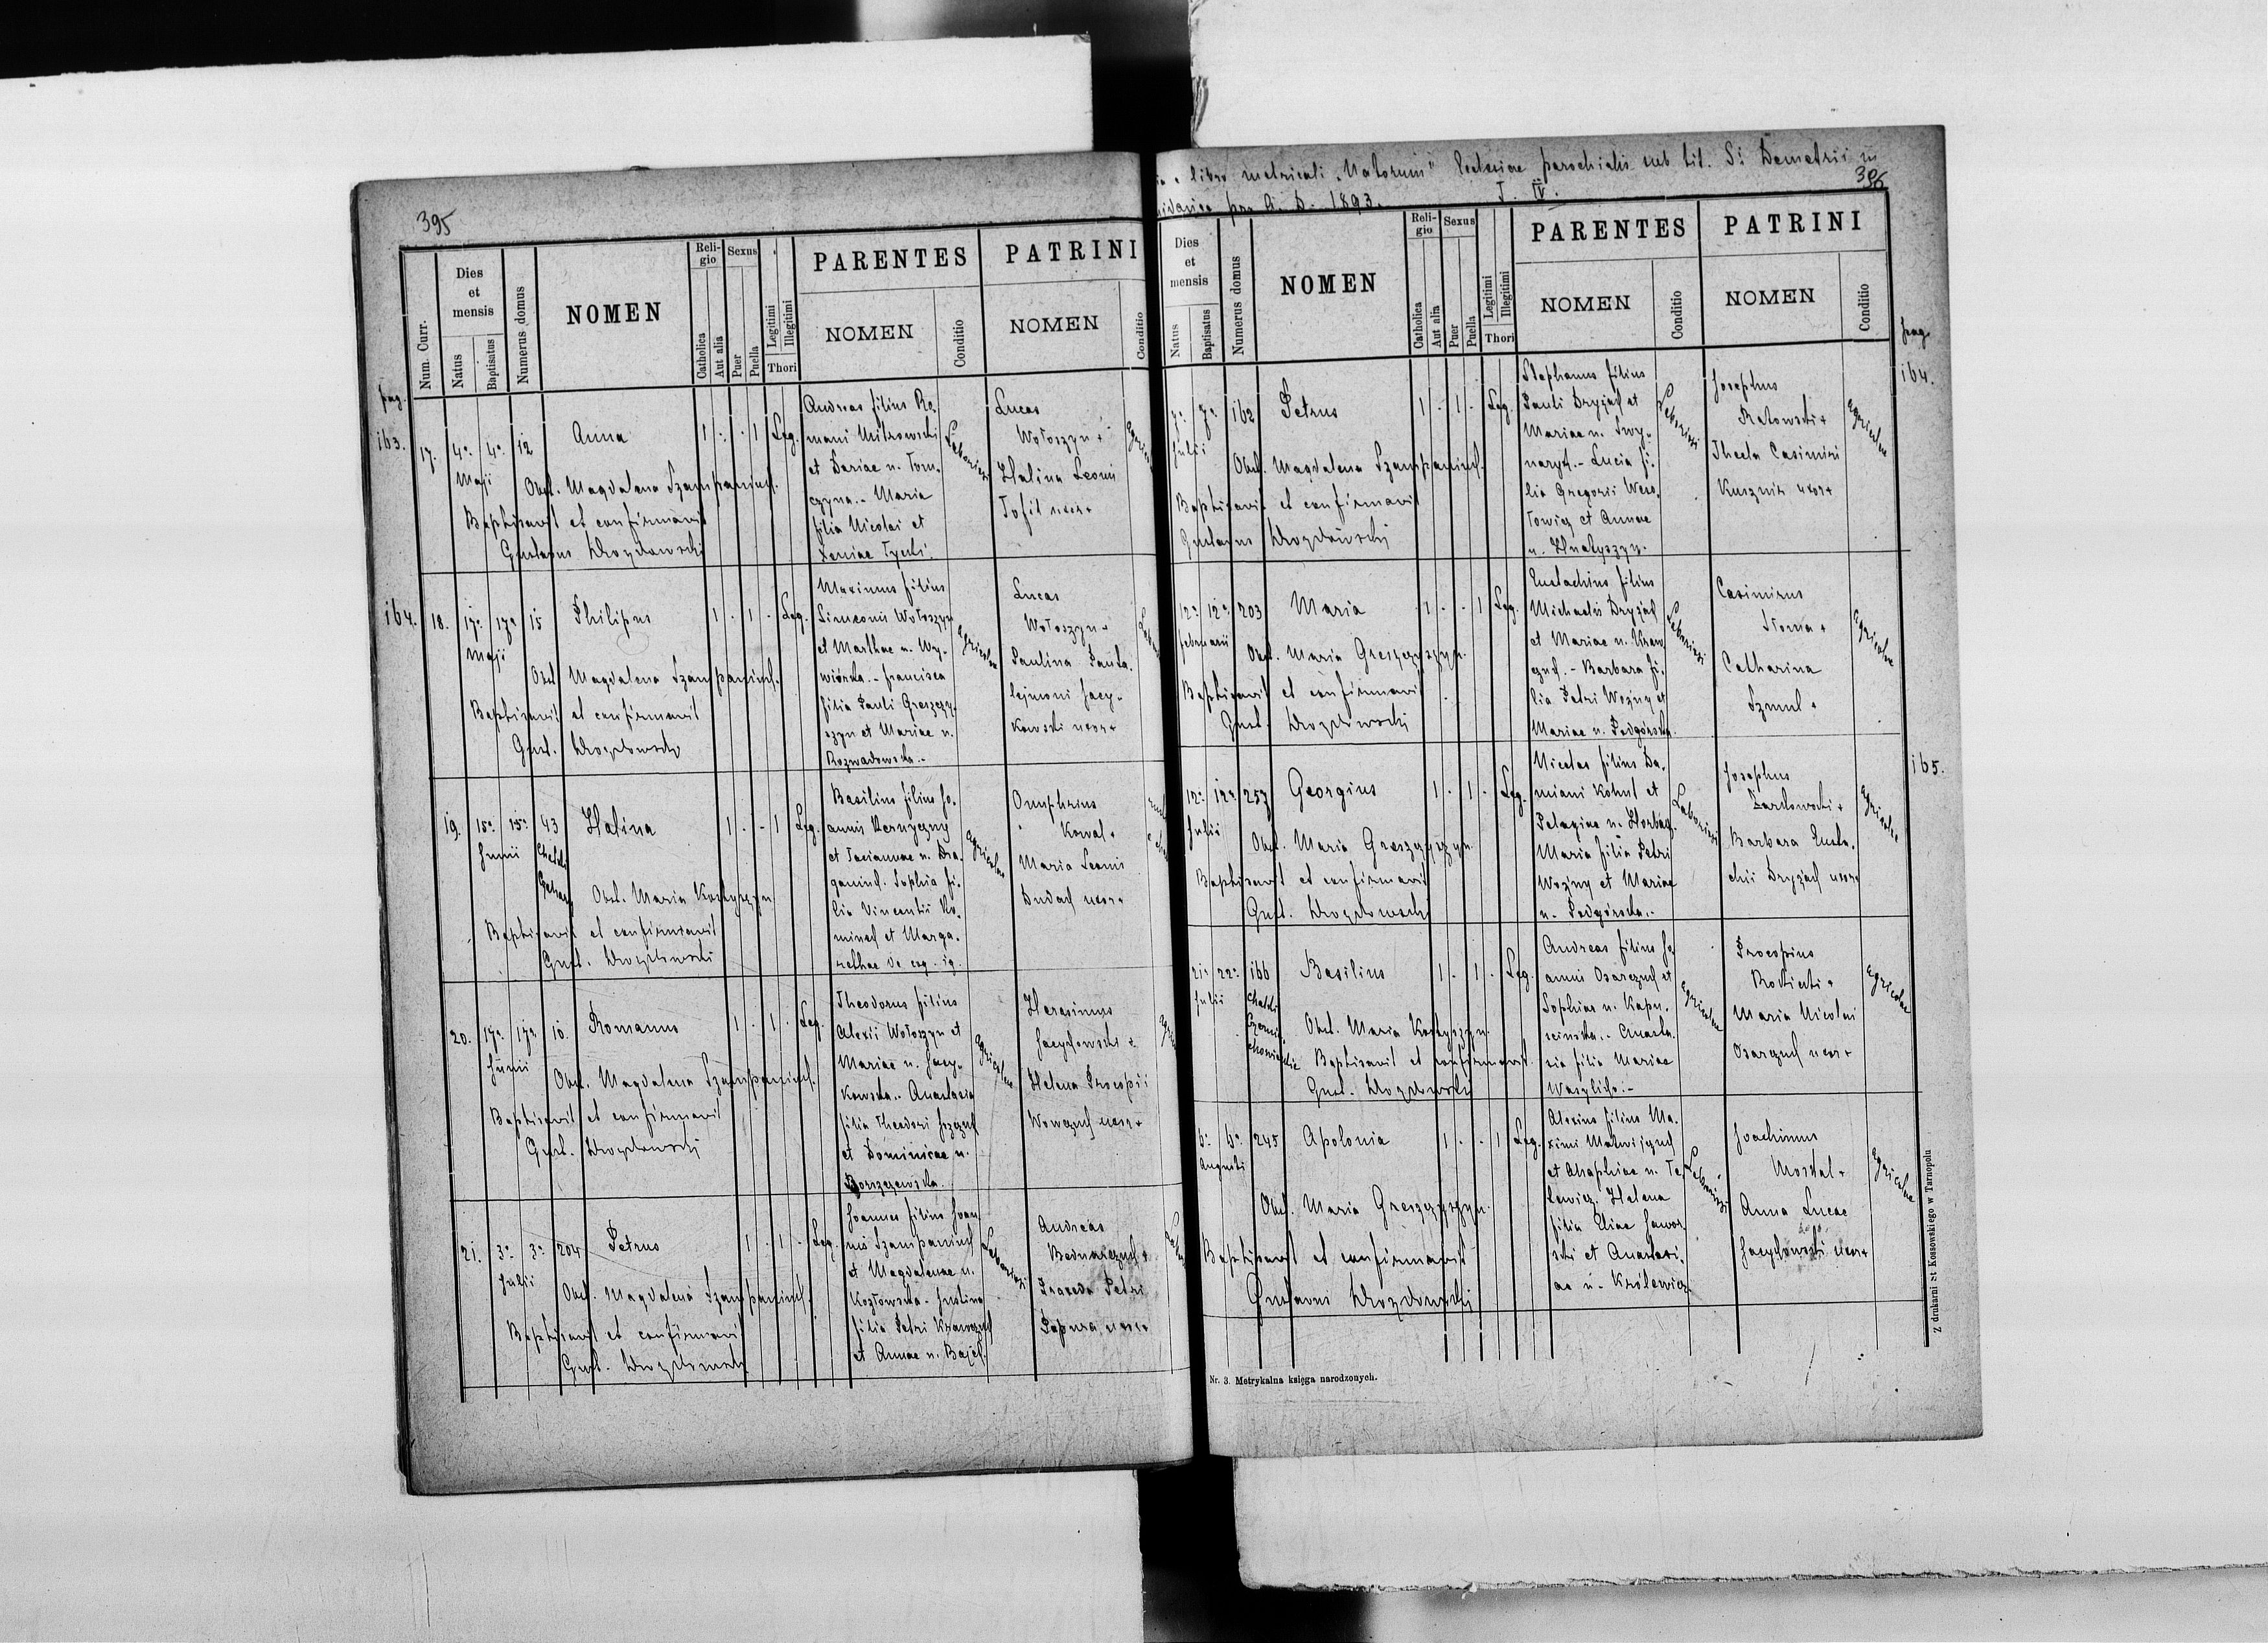 395
Num. Curr.
Dies
et
mensis
Natus
Baptisatus
Numerus domus
NOMEN
Reli-
gio
Catholica
Aut alia
Sexus
Puer
Puella
Legitimi
Illegitimi
Thori
PARENTES
NOMEN
Conditio
PATRINI
NOMEN
Conditio
pag.
163.
17. 4a. 4a. 12 Anna 1 . . 1 Leg.
Maji
Obst. Magdalena Szampaniuch.
Baptisavit et confirmavit
Gustavus Drozdowski
Andreas filius Ro-
mani Mitrowski
et Dariae n. Tom-
czyna. - Maria
filia Nicolai et
Xeniae Tycki.
Lucas
Wołoszyn +
Halina Leonis
Tofil uxor +
164.
18. 17a. 17a. 15 Philipus 1 . 1 . Leg.
Maji
Obst. Magdalena Szampaniuch.
Baptisavit et confirmavit
Gust. Drozdowski
Maximus filius
Simeonis Wołoszyn
et Marthae n. Wy-
wiórska. - Francisca
filia Pauli Greszczy-
szyn et Mariae n.
Rozwadowska. -
Agricolae
Lucas
Wołoszyn +
Paulina Panta-
lejmoni Jacy-
kowski uxor +
19. 15a. 15a. 43 Halina 1 . - 1 Leg.
Junii
Obst. Maria Kostyszyn
Baptisavit et confirmavit
Gust. Drozdowski
Basilius filius Jo-
annis Kernyczny
et Tacianae n. Dra-
ganiuch. Sophia fi-
lia Vincentii Ko-
minek et Marga-
rethae
Agricolae
Onuphrius
Kowal +
Maria Leonis
Dudach uxor +
20. 17a. 17a. 10. Romanus 1 . 1 . Leg.
Junii
Obst. Magdalena Szampaniuch.
Baptisavit et confirmavit
Gust. Drozdowski
Theodorus filius
Alexii Wołoszyn et
Mariae n. Jacy-
kowska. - Anastasia
filia Theodori
et Dominicae n.
Borszczewska.
Agricolae
Herasimus
Jacykowski +
Helena Procopii
Wowczuch uxor +
21. 3a. 3a. 204 Petrus 1 . 1 . Leg.
Julii
Obst. Magdalena Szampaniuch.
Baptisavit et confirmavit
Gust. Drozdowski
Joannes filius Joan-
nis Szampaniuch
et Magdalenae n.
Kozłowska. Justina
filia Petri Krawczuch
et Annae n.
Laboriosi
Andreas
Bednarczuch +
Praxeda Petri
Papura uxor +
libro metricali "Natorum" Ecclesiae parochialis sub tit. St. Demetrii in
pro A. D. 1893. T. IV.
396
Dies
et
mensis
Natus
Baptisatus
Numerus domus
NOMEN
Reli-
gio
Catholica
Aut alia
Sexus
Puer
Puella
Legitimi
Illegitimi
Thori
PARENTES
NOMEN
Conditio
PATRINI
NOMEN
Conditio
pag.
164.
7a. 7a. 162 Petrus 1 . 1 . Leg.
Julii
Obst. Magdalena Szampaniuch.
Baptisavit et confirmavit
Gustavus Drozdowski
Stephanus filius
Pauli Dryjach et
Mariae n. Swy-
narych. - Lucia fi-
lia Gregorii Weso-
łowicz et Annae
n. Hnatyszyn.
Laboriosi
Josephus
Ratowski +
Thecla Casimiri
Kusznir uxor +
Agricolae
12a. 12a. 203 Maria 1 . . 1 Leg.
Februarii
Obst. Maria Greszczyszyn.
Baptisavit et confirmavit
Gust. Drozdowski
Eustachius filius
Michaelis Dryjach
et Mariae n. Kraw-
czuch. - Barbara fi-
lia Petri Wozny et
Mariae n. Podgórska.
Laboriosi
Casimirus
Słoma +
Catharina
Szmul +
Agricolae
165.
12a. 12a. 257 Georgius 1 . 1 . Leg.
Julii
Obst. Maria Greszczyszyn.
Baptisavit et confirmavit
Gust. Drozdowski
Nicolas filius Da-
miani Kohut et
Pelagiae n. Horbacz.
Maria filia Petri
Wozny et Mariae
n. Podgórska. -
Laboriosi
Josephus
Barbara Eusta-
chii Dryjach uxor +
Agricolae
21a. 22a. 166 Basilius 1 . 1 . Leg.
Julii
Obst. Maria Kostyszyn.
Baptisavit et confirmavit.
Gust. Drozdowski
Andreas filius Jo-
annis Osarczuch et
Sophiae n. Kapu-
scinska. - Anasta-
sia filia Mariae
Wasylicha. -
Agricolae
Procopius
Maria Nicolai
Osarczuch uxor +
Agricolae
6a. 6a. 245 Apolonia 1 . . 1 Leg.
Augusti
Obst. Maria Greszczyszyn.
Baptisavit et confirmavit
Gustavus Drozdowski
Alexius filius Ma-
ximi Matwijczuch
et Ahaphiae n. Te-
lewicz. Helena
filia Eliae Jawor-
ski et Anastasi-
ae n. Królewicz
Laboriosi
Joachimus
Moskal +
Anna Lucae
Jacykowski uxor +
Agricolae
Nr. 3. Metrykalna księga narodzonych.
Z drukarni St Kossowskiego w Tarnopolu